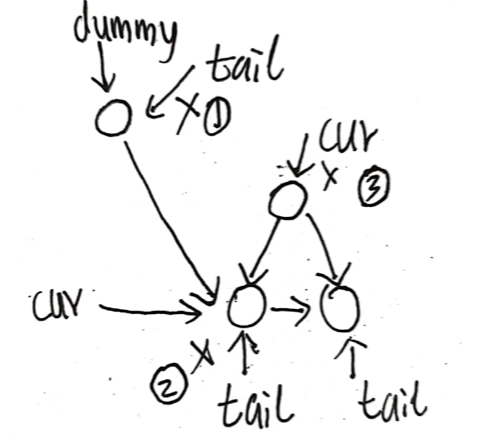 dummy
tail
×①
cur
× ③
cur
×
②
tail
tail